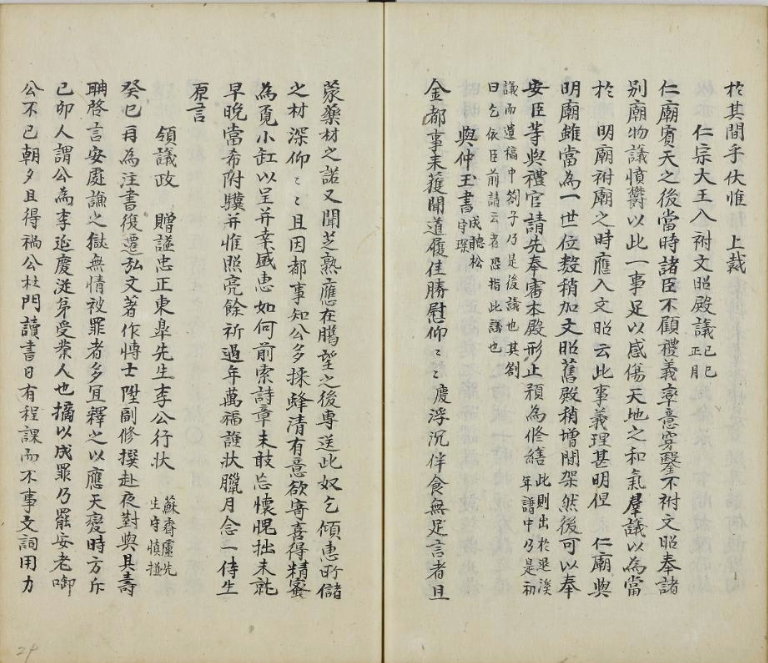 於其間乎伏惟 上裁
仁宗大王入祔文昭殿議 乙巳正月
仁廟賓天之後當時諸臣不顧禮義率意穿鑿不祔文昭奉諸
別廟物議憤欝以此一事足以感傷天地之和氣羣議以為當
於 明廟祔廟之時應入文昭云此事義理甚明但 仁廟與
明廟雖當為一世位數稍加文昭舊殿稍增間架然後可以奉
安臣等與禮官請先奉審本殿形止預為修繕 此則出於退溪年譜中乃是初
議而遺稿中劄子乃是後議也其劄曰乞依臣前請云者恐指此議也
與仲玉書 成聽松守琛
金都事來獲聞道履佳勝慰仰〻〻慶浮沉伴食無足言者且
蒙藥材之諾又聞芝熟應在臘望之後專送此奴乞傾惠所儲
之材深仰〻〻且因都事知公多採蜂清有意欲寄喜得精蜜
為覓小缸以呈并幸感惠如何前索詩章未敢忘懷愧拙未就
早晚當希附驥并惟照亮餘祈過年萬福謹狀臘月念一侍生
原吉
領議政 贈謚忠正東皐先生李公行狀 蘇齋盧先生守慎撰
癸巳再為注書復遷弘文著作博士陞副修撰赴夜對與具壽
聃啓言安處謙之獄無情被罪者多宜釋之以應天變時方斥
己卯人謂公為李延慶從弟受業人也搆以成罪乃罷安老啣
公不已朝夕且得禍公杜門讀書日有程課而不事文詞用力
24